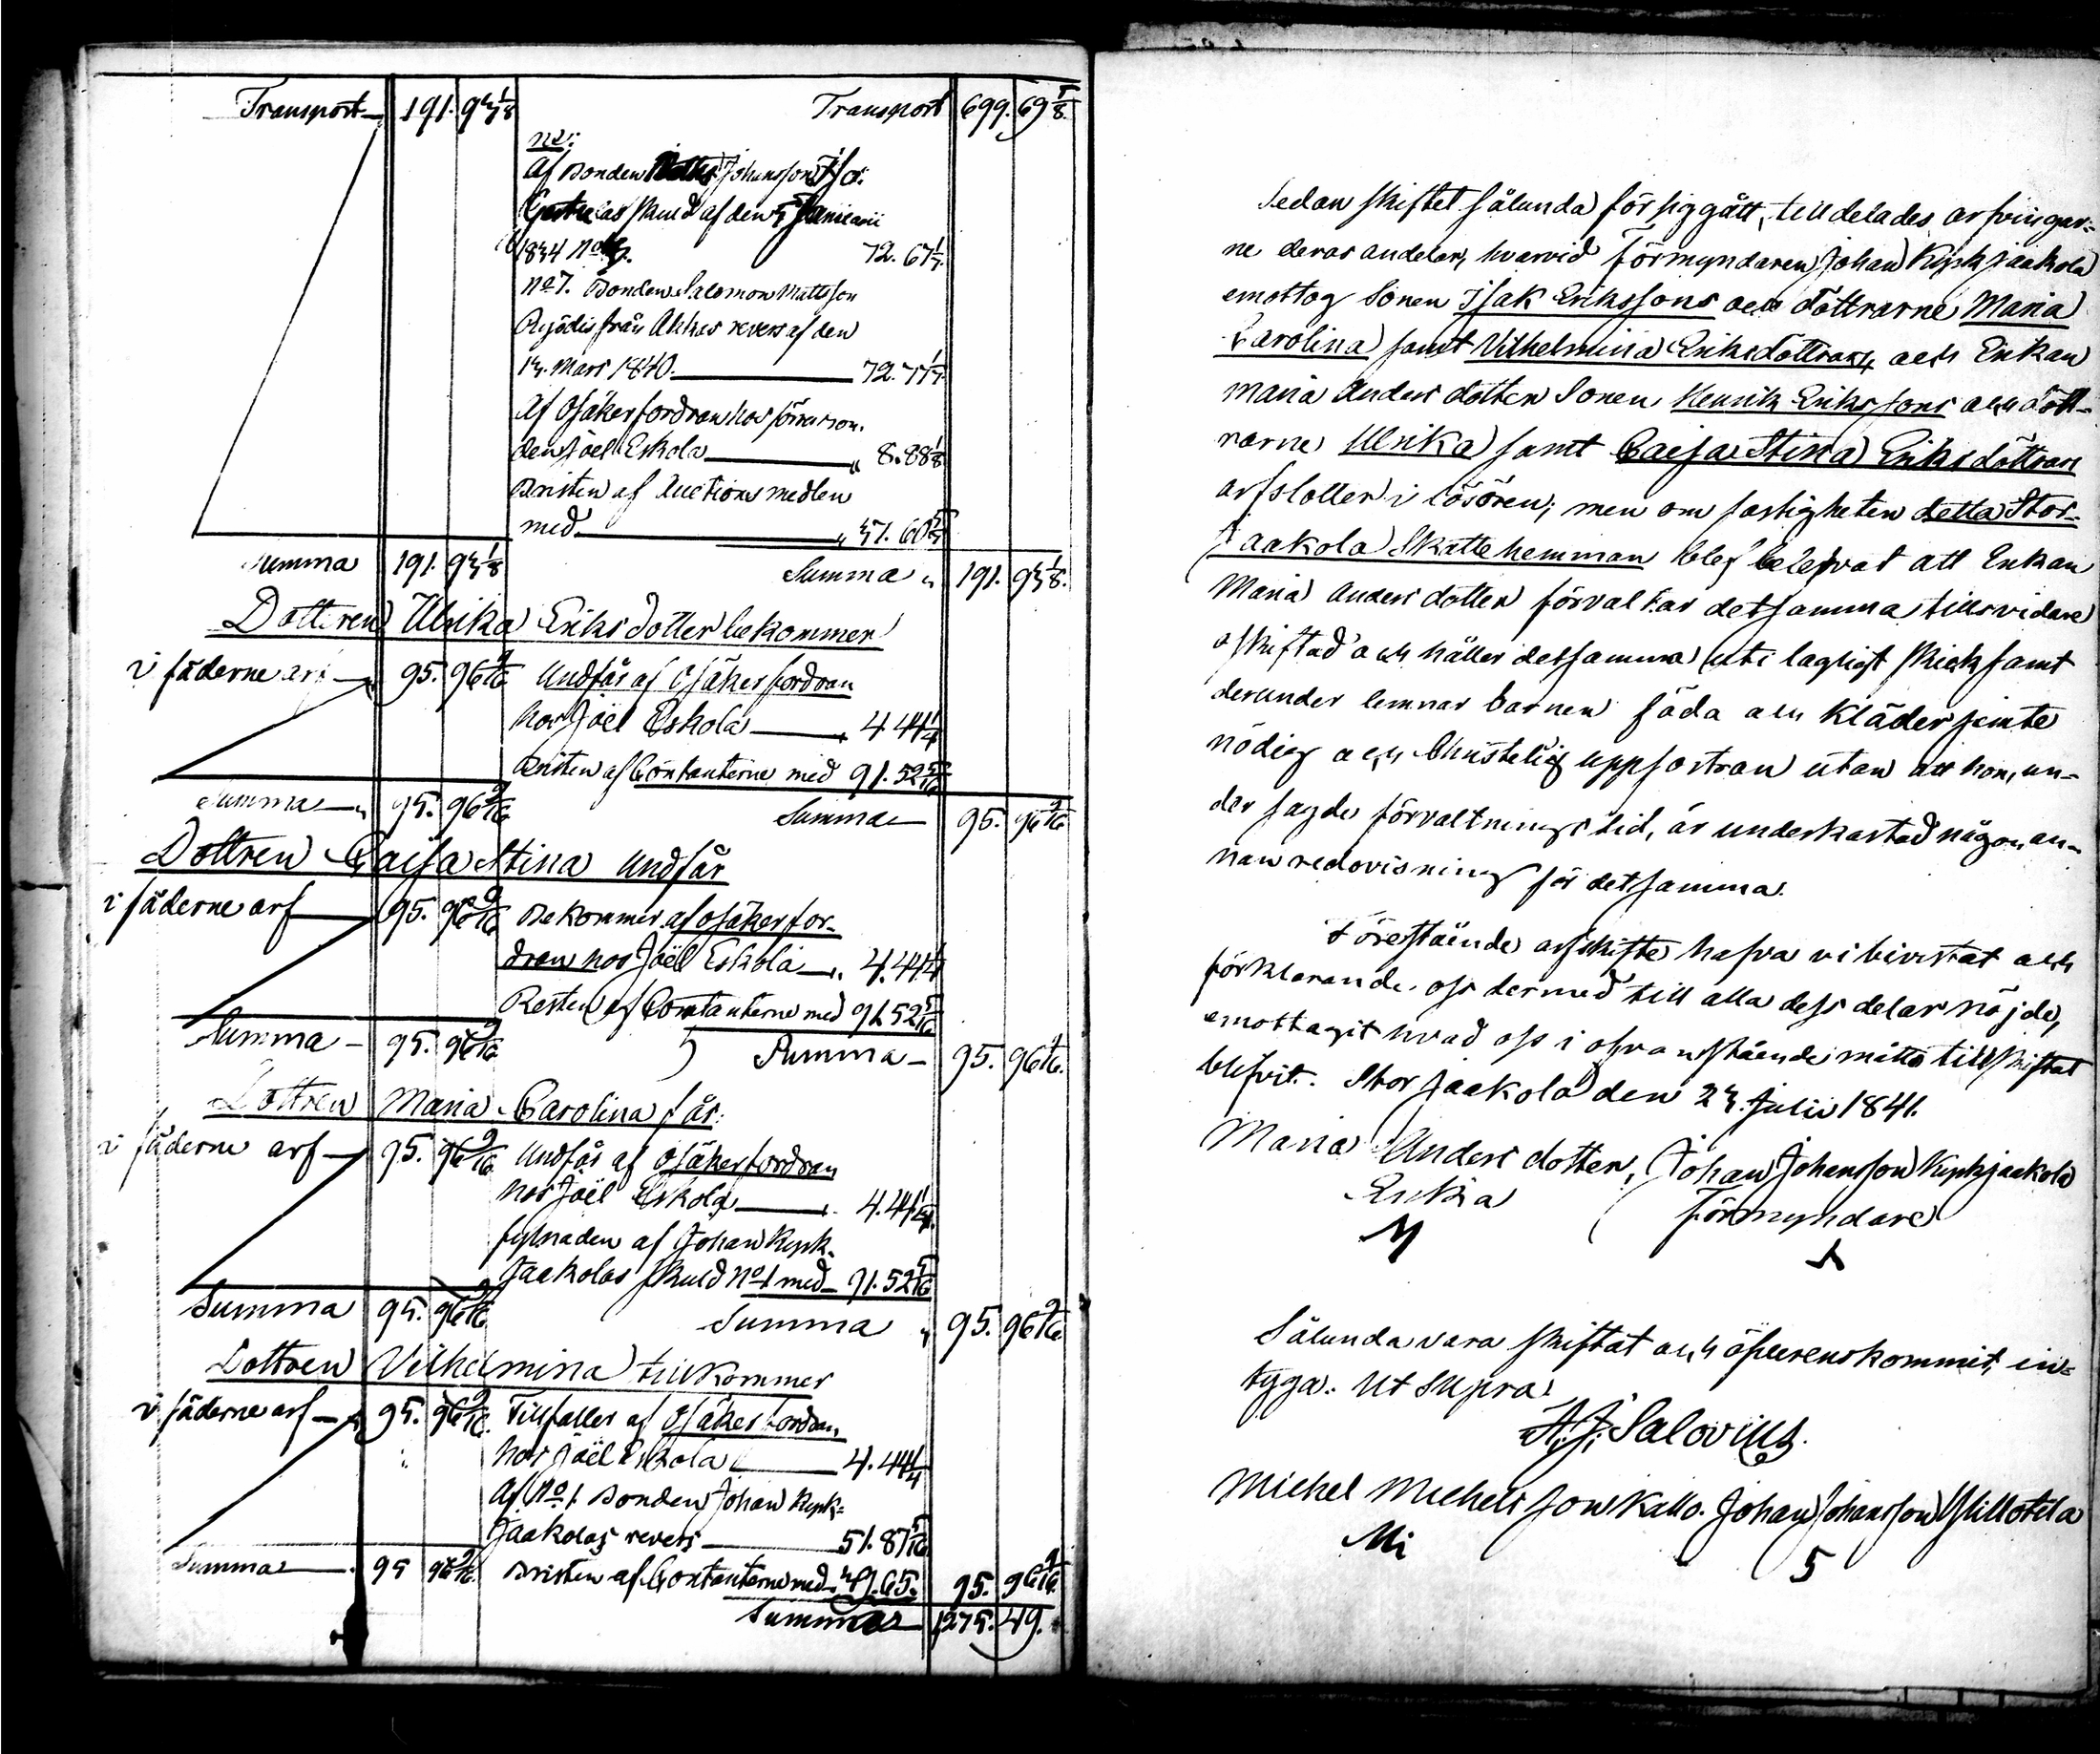 Transport 191. 93 1/8 Transport 699. 69 5/8.
Af Bonden Johansson
skuld af den Januarii
1834 72. 67 1/7.
No 7. Bonden Salomon Mattsson
från Akkus revers af den
13. Mars 1840. 72. 77 1/7
Af Osäker fordran hos förre Bon-
den Joël Eskola " 8. 88 1/8
Bristen af Auctions medlen
med
Summa 191. 93 1/8 Summa " 191. 93 1/8.
Dottren Ulrika Eriksdotter bekommer
i fäderne arf 95. 96 9/16 Undfår af Osäker fordran
hos Joël Eskola 4. 44 1/4
Bristen af Contanterne med 91. 52 5/16
Summa 95. 96 9/16 Summa 95. 96 9/16
Dottren Caisa Stina undfår
i fäderne arf 95. 96 9/16 Bekommer af osäker for-
dran hos Joël Eskola " 4. 44 1/4
Resten af Contanterne med 91. 52 5/16
Summa 95. 96 9/16 Summa 95. 96 9/16.
Dottren Maria Carolina får
i fäderne arf 95. 96 9/16 Undfår af osäker fordran
hos Joël Eskola 4. 44 1/4.
fylnaden af Johan Kepk-
Jaakolas skuld No 1 med 91. 52 5/16
Summa 95. 96 9/16 Summa " 95. 96 9/16
Dottren Vilhelmina tillkommer
i fäderne arf 95. 96 9/16. Tillfaller af Osäker fordran,
hos Joël Eskola 4. 44 1/4
Af No 1. Bonden Johan Kepk-
Jaakolas revers 51. 87 5/16
Summa 95 96 9/16. Bristen af Contanterne med 95. 96 9/16.
Summa 1275. 49.
Sedan skiftet sålunda för sig gått, tilldelades arfvingar-
ne deras andelar, hvarvid Förmyndaren Johan Kepkjaakola
emottog Sonen Isak Erikssons och Döttrarne Maria
Carolina samt Vilhelmina Eriksdöttrars, och Enkan
Maria Andersdotter Sonen Henrik Erikssons och Dött-
rarne Ulrika samt Caisa Stina Eriksdöttrars
arfslotter i lösören; men om fastigheten detta Stor-
Jaakola Skattehemman blef belefvat att Enkan
Maria Andersdotter förvaltar detsamma tillsvidare
oskiftad och håller detsamma uti lagligt skick samt
derunder lemnar barnen föda och Kläder jemte
nödig och Christelig uppfostran utan att hon, un-
der sagde förvaltningstid, är underkastad någon an-
nan redovisning för detsamma.
Förestående arfskifte hafva vi bivistat och
förklarande oss dermed till alla dess delar nöjde,
emottagit hvad oss i ofvanstående måtto tillskiftat
blifvit. Stor Jaakola den 23. Julii 1841.
Maria Andersdotter, Johan Johansson Kepkjaakola
Enka Förmyndare
Sålunda vara skiftat och öfverenskommit, in-
tyga. Ut supra
Salovius.
Michel Michelsson Kallo. Johan Johansson Yllotila